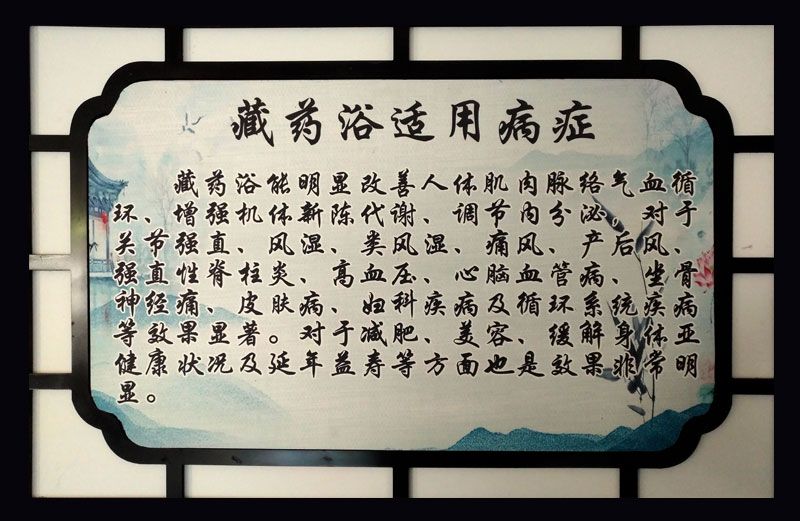 藏药浴适用病症
藏药浴能明显改善人体肌肉脉络气血循
环、增强机体新陈代谢、调节内分泌。对于
关节强直、风湿、类风湿、痛风、产后风、
强直性脊柱炎、高血压、心脑血管病、坐骨
神经痛、皮肤病、妇科疾病及循环系统疾病
等效果显著。对于减肥、美容、缓解身体亚
健康状况及延年益寿等方面也是效果非常明
显。